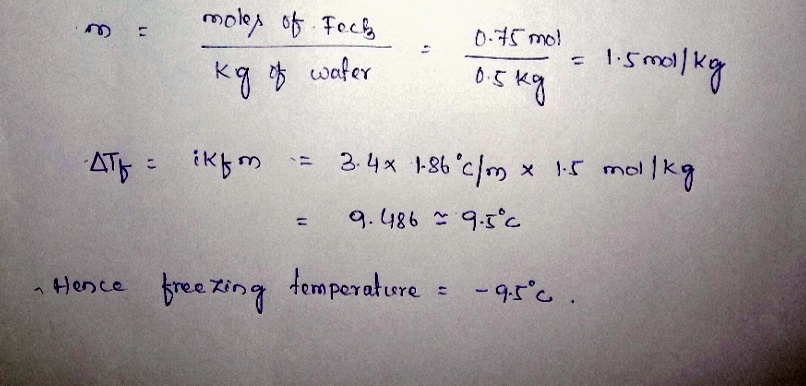 m = moles of FeCl3 / kg of water = 0.75 mol / 0.5 kg = 1.5 mol/kg
ΔTf = ikfm = 3.4 x 1.86 °C/m x 1.5 mol/kg
= 9.486 ≃ 9.5°C
Hence freezing temperature = -9.5°C.